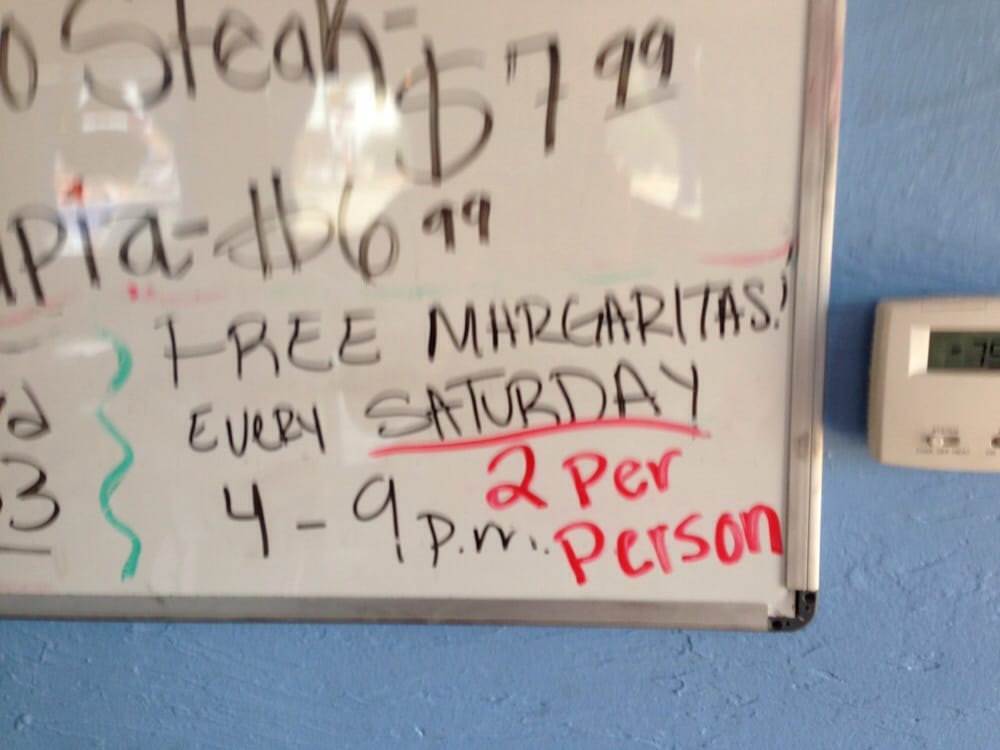 o Steak- $7.99
apia-$6.99
FREE MARGARITAS!
EVERY SATURDAY
4-9 p.m. 2 Per Person
3